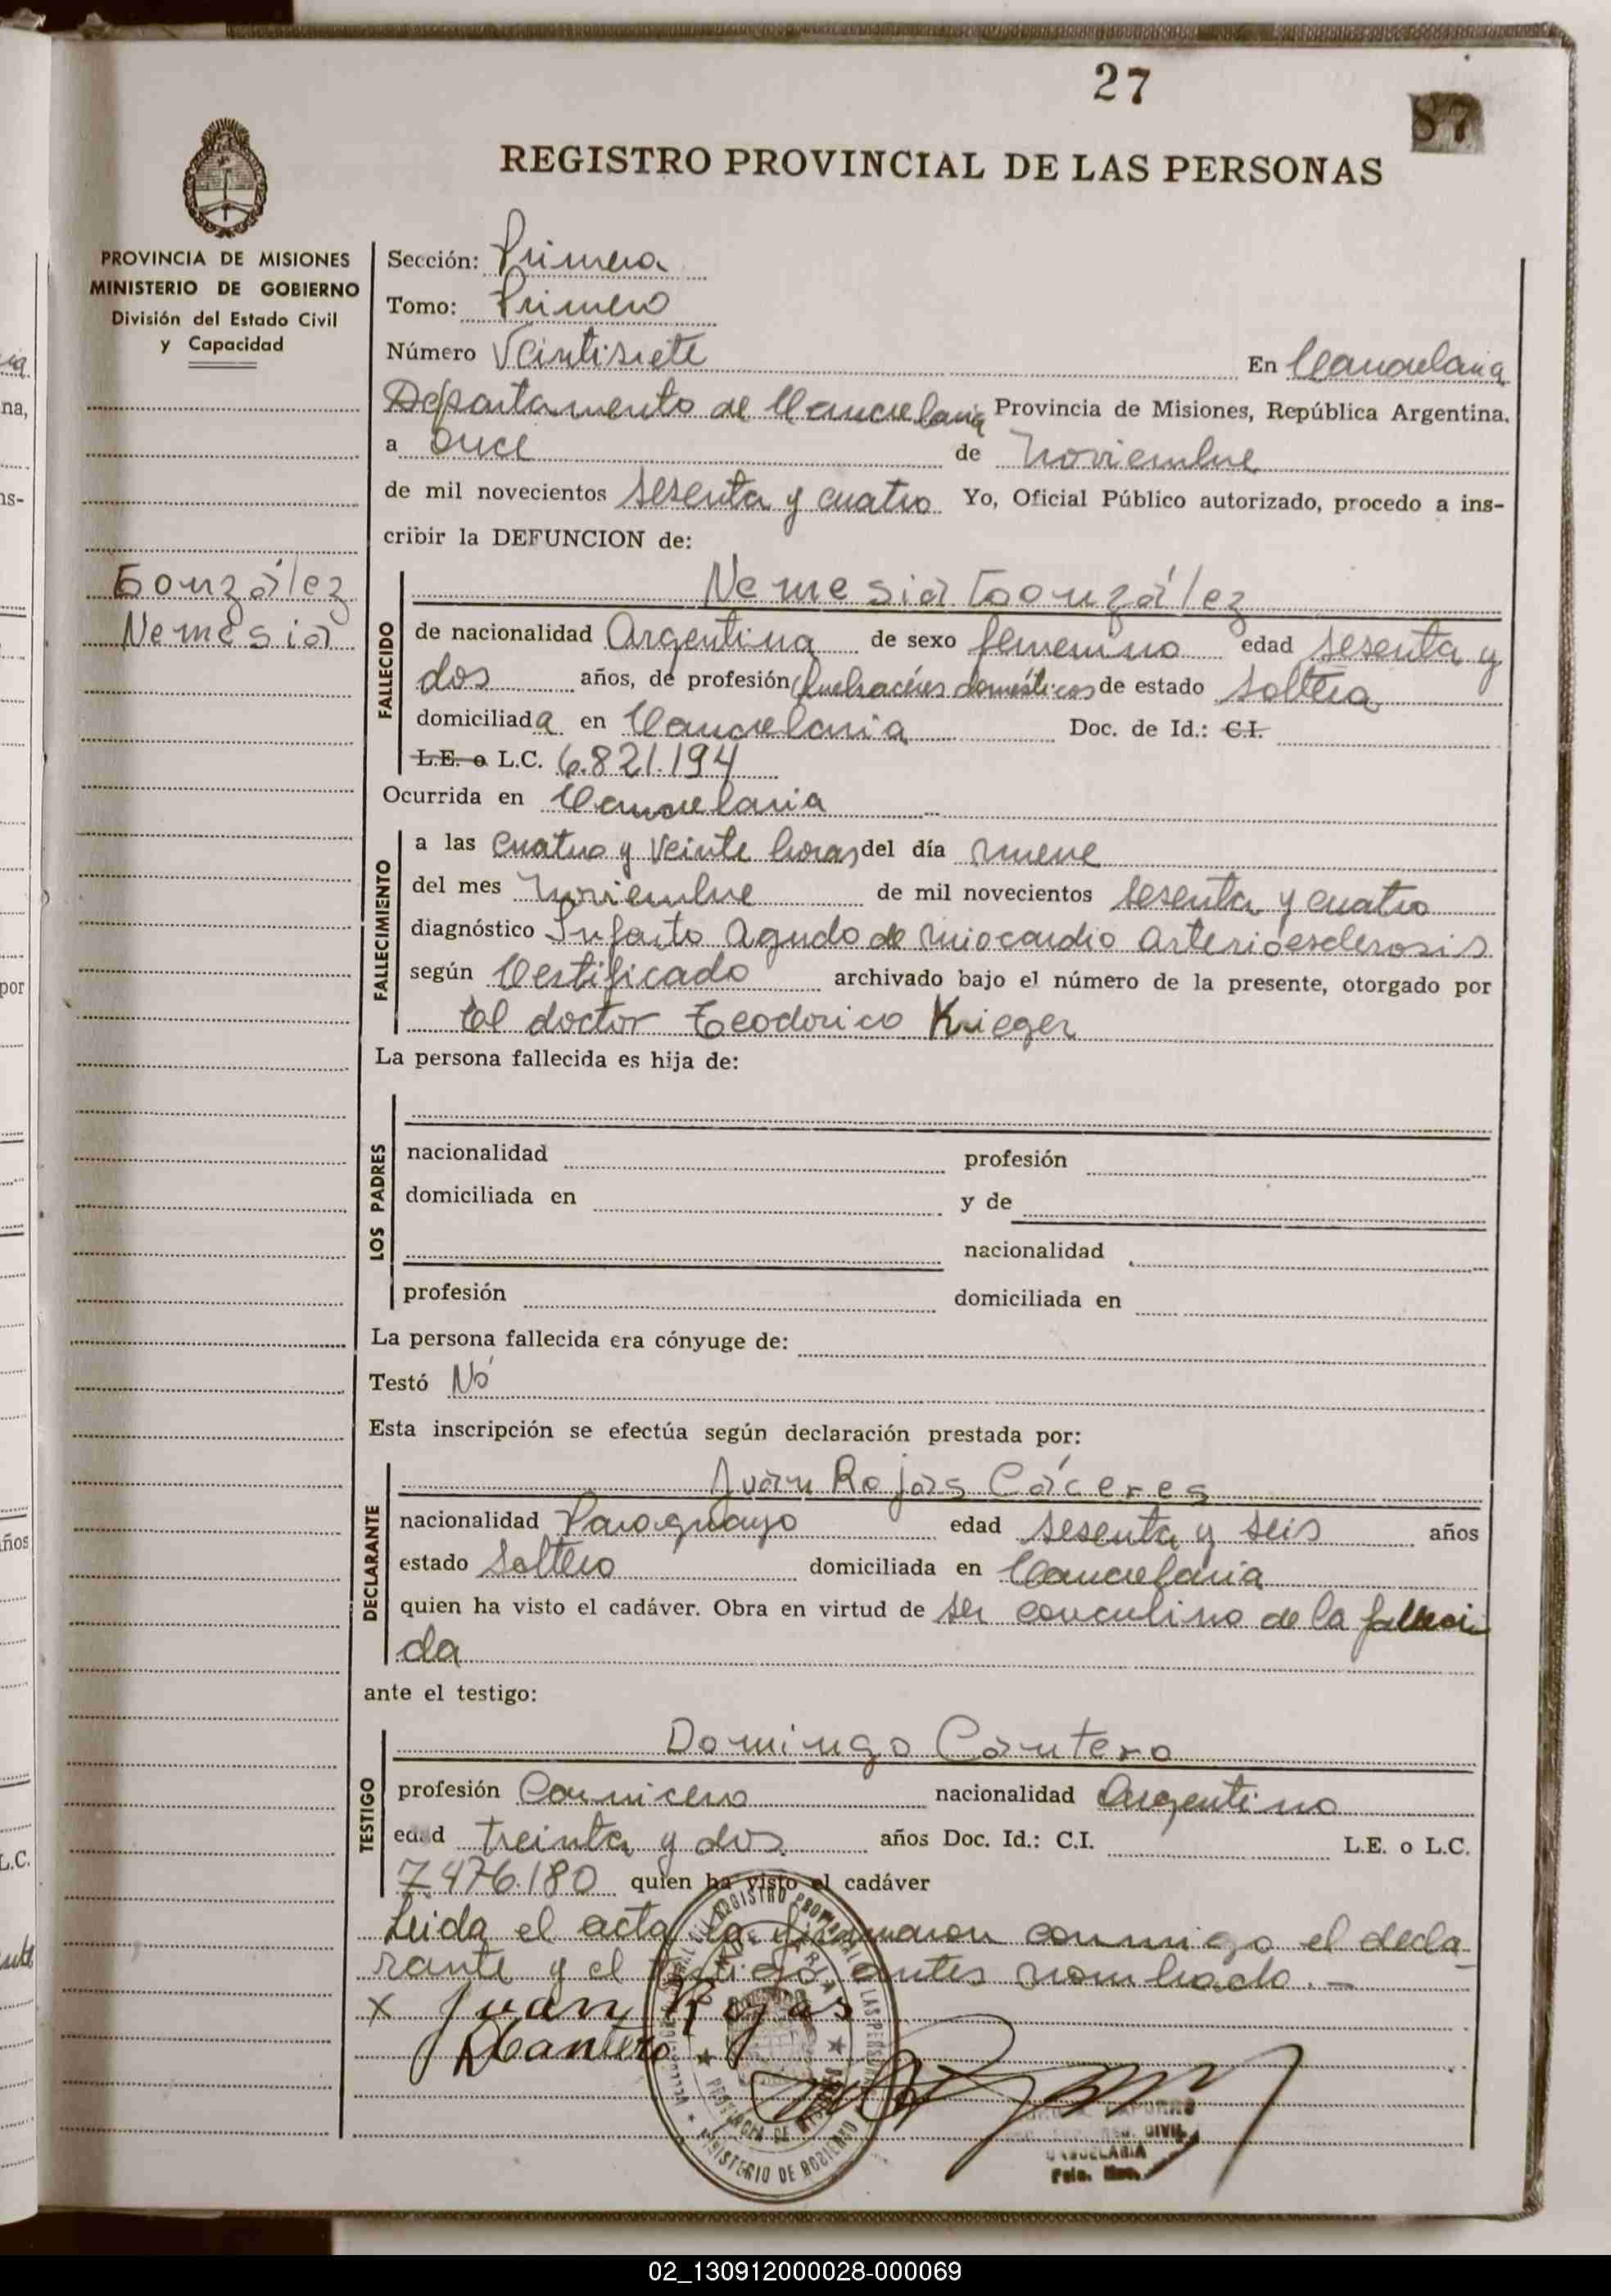 27
87
REGISTRO PROVINCIAL DE LAS PERSONAS
PROVINCIA DE MISIONES
MINISTERIO DE GOBIERNO
División del Estado Civil
y Capacidad
González
Nemesia
Sección: Primera
Tomo: Primero
Número Veintisiete En Candelaria
Departamento de Candelaria Provincia de Misiones, República Argentina.
a once de Noviembre
de mil novecientos sesenta y cuatro Yo, Oficial Público autorizado, procedo a ins-
cribir la DEFUNCION de:
FALLECIDO
Nemesia González
de nacionalidad Argentina de sexo femenino edad sesenta y
dos años, de profesión Quehacéres domésticos de estado soltera
domiciliada en Candelaria Doc. de Id.: C.I.
L.E. o L.C. 6.821.194
Ocurrida en Candelaria
FALLECIMIENTO
a las cuatro y veinte horas del día nueve
del mes Noviembre de mil novecientos sesenta y cuatro
diagnóstico Infarto Agudo de miocardio arterioesclerosis
según Certificado archivado bajo el número de la presente, otorgado por
el doctor Teodorico Krieger
La persona fallecida es hija de:
LOS PADRES
nacionalidad profesión
domiciliada en y de
nacionalidad
profesión domiciliada en
La persona fallecida era cónyuge de:
Testó Nó
Esta inscripción se efectúa según declaración prestada por:
DECLARANTE
Juan Rojas Cáceres
nacionalidad Paraguayo edad sesenta y seis años
estado soltero domiciliada en Candelaria
quien ha visto el cadáver. Obra en virtud de ser conculino de la falleci
da
ante el testigo:
TESTIGO
Domingo Cantero
profesión Carnicero nacionalidad Argentino
edad treinta y dos años Doc. Id.: C.I. L.E. o L.C.
7.476.180 quien ha visto el cadáver
Leida el acta la firmaron conmigo el decla-
rante y el testigo antes nombrado.-
x Juan Rojas
DCantero
MINISTERIO DE GOBIERNO
CANDELARIA
02_130912000028-000069